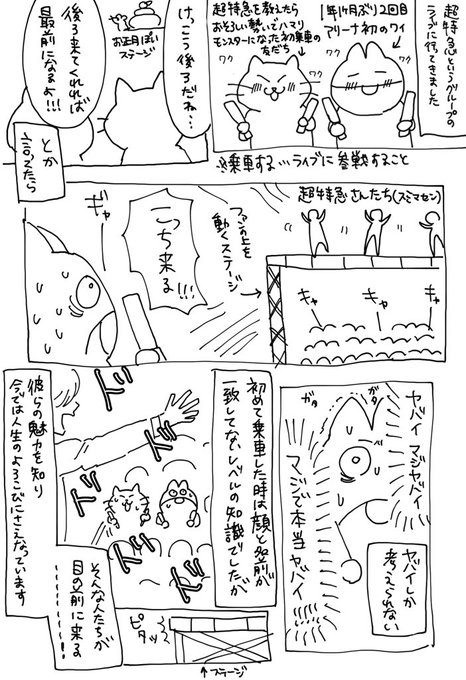 超特急というグループの
ライブに行ってきました
1年1ヶ月ぶり2回目
アリーナ初のワイ
超特急を教えたら
おそろしい勢いでハマリ
モンスターになった初乗車の
友だち
ワク
ワク
ワク
ワク
※乗車する…ライブに参戦すること
けっこう後ろだね…
お正月ぽい
ステージ
後ろ来てくれれば
最前になるよ!!!
とか
言ってたら
超特急さんたち(スミマセン)
キャー
キャー
キャー
ファンの上を
動くステージ
こっち来る!!!
ギャー
ガタ
ガタ
ヤバイ マジヤバイ
マジで本当ヤバイ
ヤバイしか
考えられない
初めて乗車した時は顔と名前が
一致してないレベルの知識でしたが
ズッ
ズッ
ズッ
ズッ
ズッ
彼らの魅力を知り
今では人生のよろこびにさえなっています
そんな人たちが
目の前に来る
…………!
ピタッ
↑ステージ